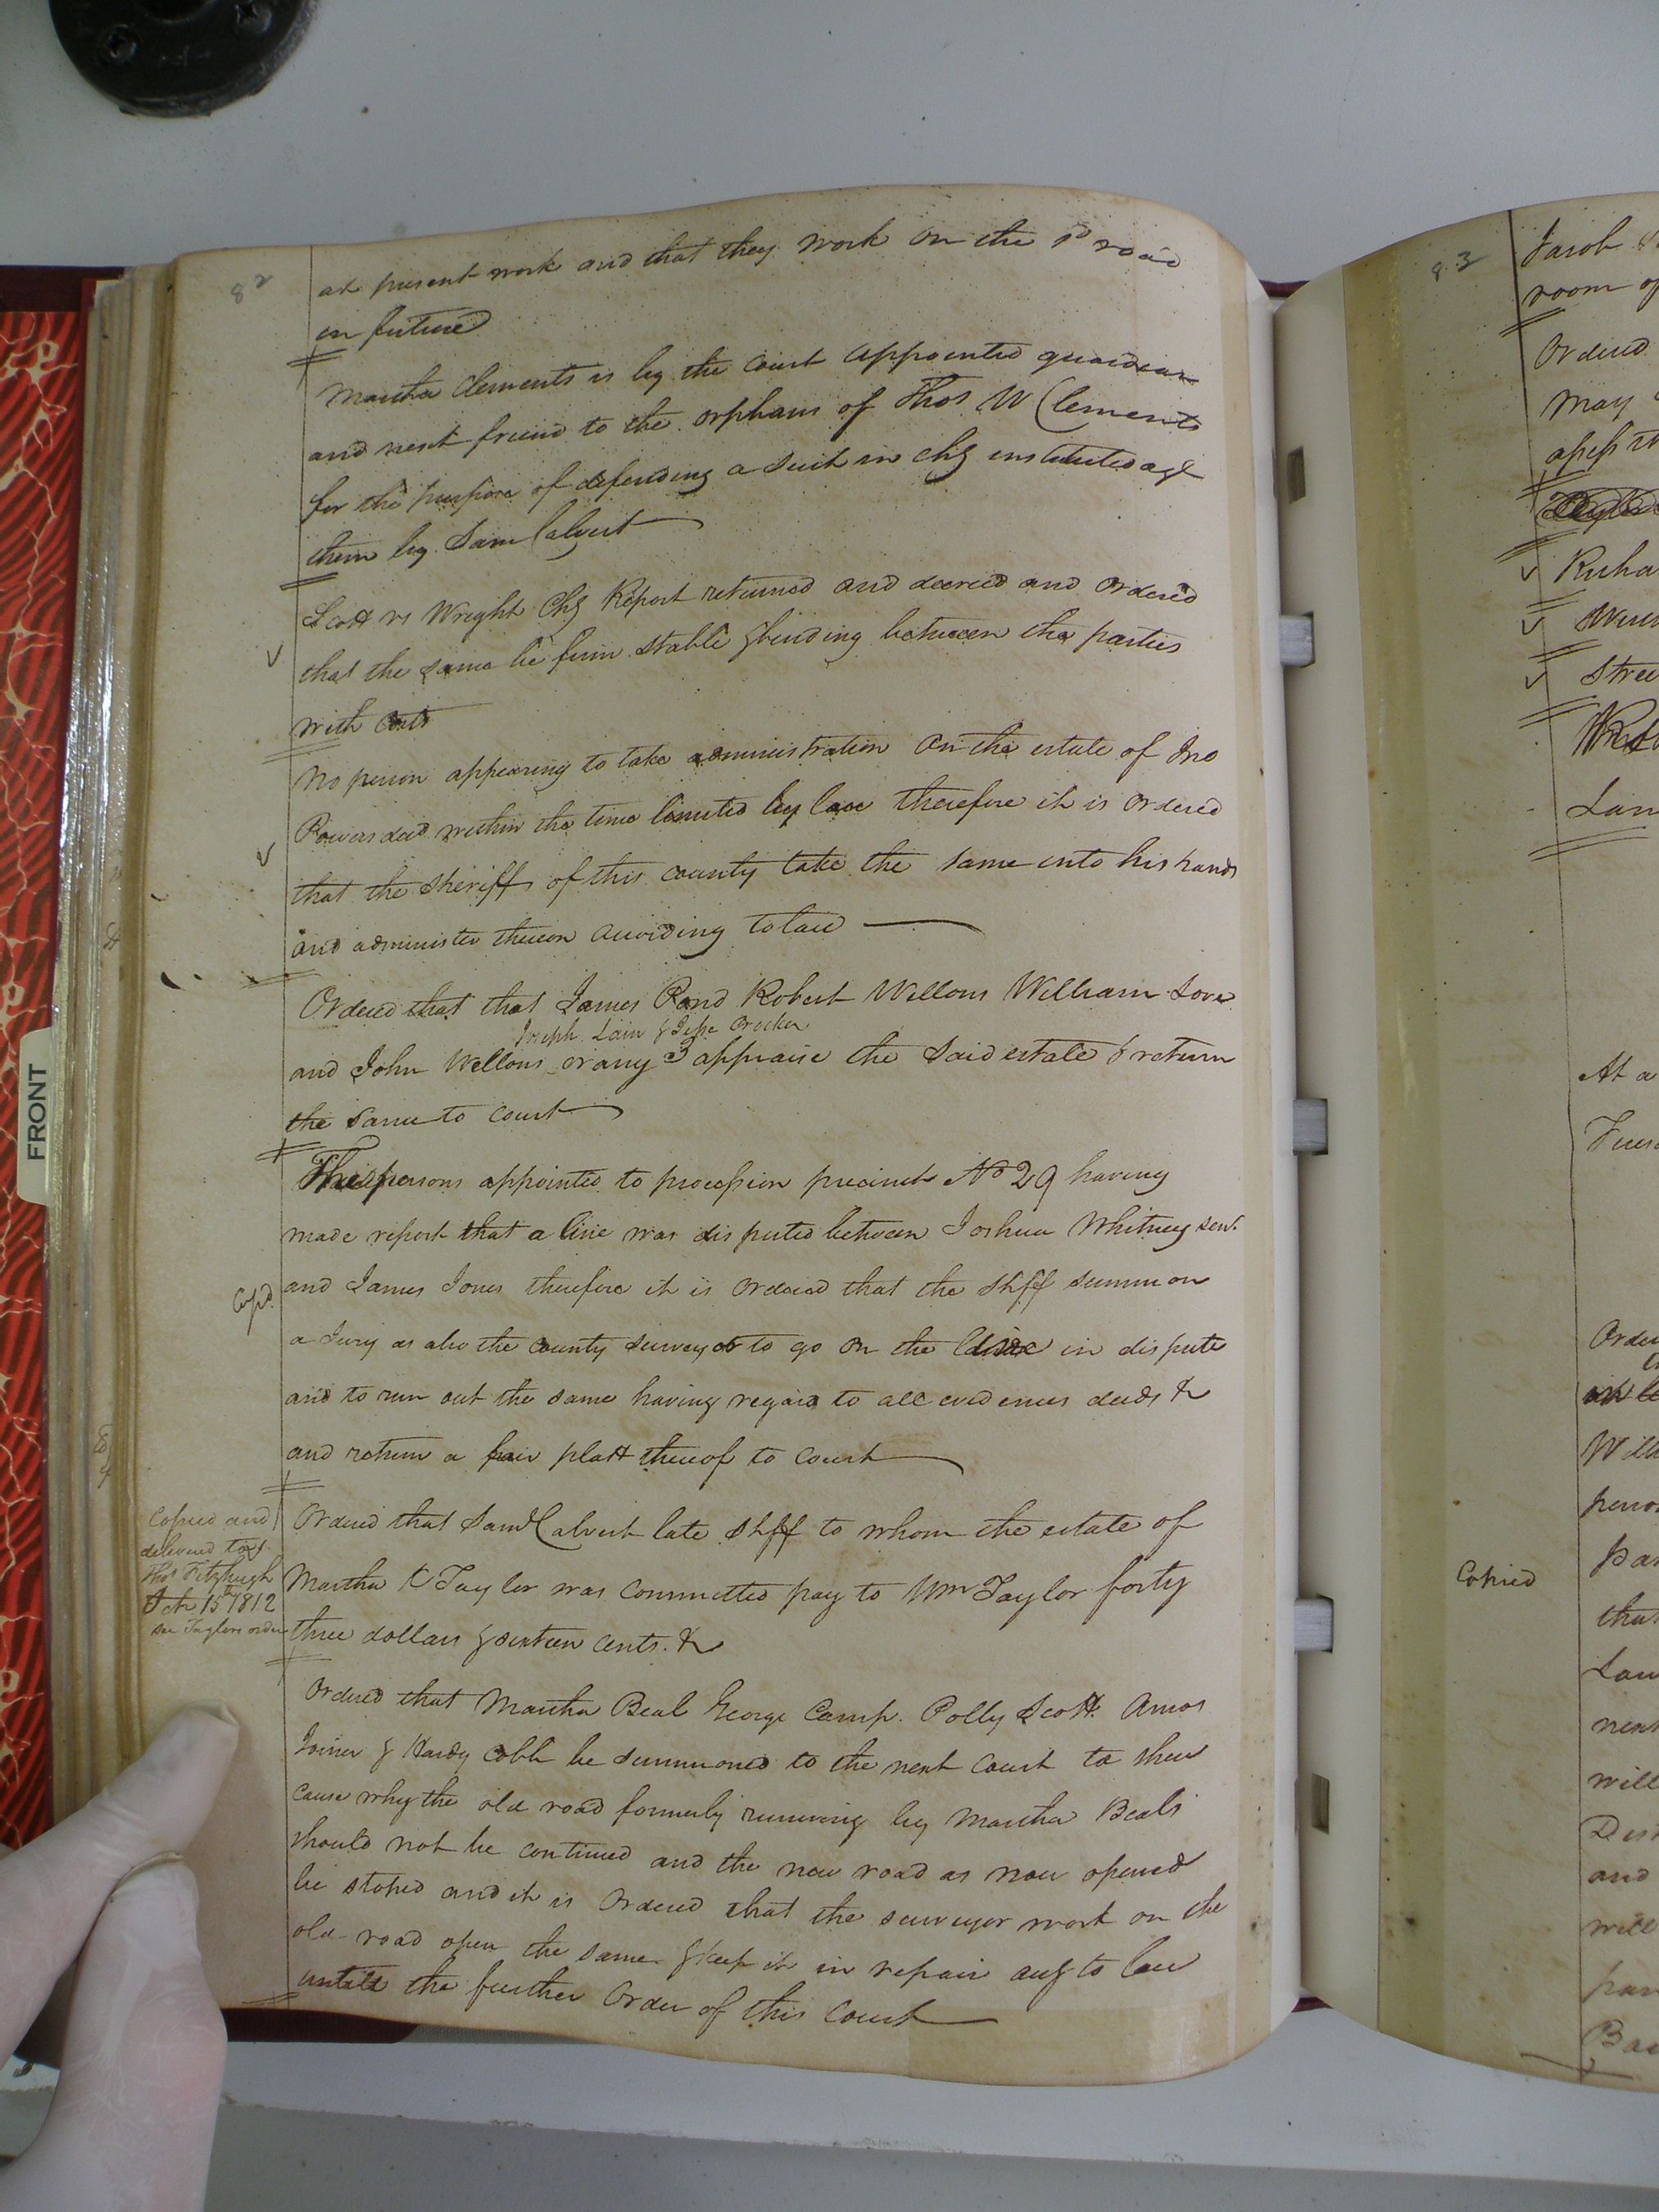 82
at present work and that they work on the sd road
in future
Martha Clements is by the court appointed guardian
and next friend to the orphans of Thos W Clements
for the purpose of defending a suit in Chy instituted agt
them by Saml Calvert
Scott vs Wright Chy Report returned and decreed and ordered
that the same be firm stable & binding between the parties
with costs
No person appearing to take administration on the estate of Jno
decd within the time limited by law therefore it is ordered
that the sheriff of this county take the same into his hands
and administer thereon according to law
Ordered that that James Rand Robert Wellons William Love
Joseph Lain & Jesse Crocker
and John Wellons or any 3 appraise the said estate & return
the same to court
The persons appointed to procession precinct No 29 having
made report that a line was disputed between Joshua Whitney senr
Copd.
and James Jones therefore it is ordered that the shff summon
a Jury as also the county surveyor to go on the line in dispute
and to run out the same having regard to all evidences deeds &c
and return a fair platt thereof to court
Copied and
delivered to
Thos Fitzhugh
15th 1812
see Taylors order
Ordered that Saml Calvert late shff to whom the estate of
Martha K Taylor was committed pay to Wm Taylor forty
three dollars & sixteen cents. &c
Ordered that Martha Beal George Camp. Polly Scott Amos
Joiner & Hardy Cobb be summoned to the next court to shew
cause why the old road formerly running by Martha Beals
should not be continued and the new road as now opened
be stoped and it is ordered that the surveyor work on the
old road open the same & keep it in repair accg to law
untill the further order of this court
FRONT
83
Jacob
room of
Ordered
May
Richa
Stree
Lan
At a
Orde
Copied
and
will